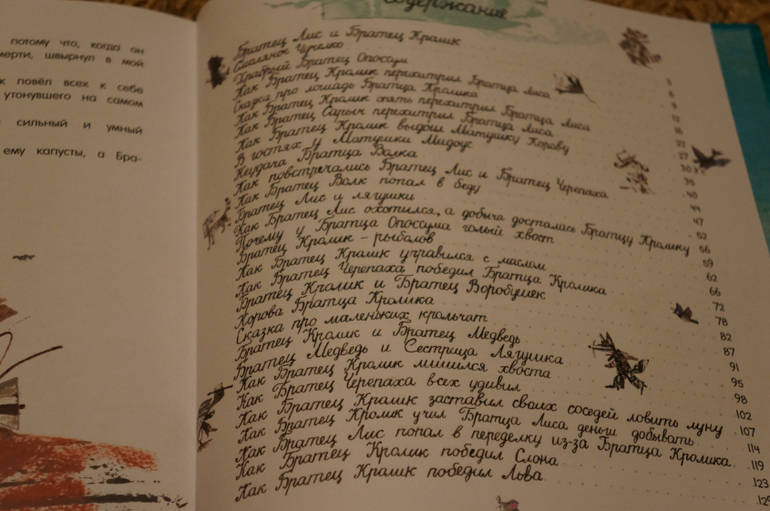 потому что, когда он
ерти, швырнул в мой
к повёл всех к себе
утонувшего на самом
сильный и умный
ему капусты, а Бра-
Содержание
Братец Лис и Братец Кролик 5
Смоляное Чучелко 6
Храбрый Братец Опоссум 9
Как Братец Кролик перехитрил Братца Лиса 12
Сказка про лошадь Братца Кролика 16
Как Братец Кролик опять перехитрил Братца Лиса 22
Как Братец Сарыч перехитрил Братца Лиса 27
Как Братец Кролик выдоил Матушку Корову 30
В гостях у Матушки Мидоус 36
Неудача Братца Волка 40
Как повстречались Братец Лис и Братец Черепаха 44
Как Братец Волк попал в беду 47
Братец Лис и лягушки 52
Как Братец Лис охотился, а добыча досталась Братцу Кролику 56
Почему у Братца Опоссума голый хвост 59
Братец Кролик - рыболов 62
Как Братец Кролик управился с маслом 66
Как Братец Черепаха победил Братца Кролика 72
Братец Кролик и Братец Воробушек 78
Корова Братца Кролика 82
Сказка про маленьких крольчат 87
Братец Кролик и Братец Медведь 91
Братец Медведь и Сестрица Лягушка 95
Как Братец Кролик лишился хвоста 98
Как Братец Черепаха всех удивил 102
Как Братец Кролик заставил своих соседей ловить луну 107
Как Братец Кролик учил Братца Лиса деньги добывать 114
Как Братец Лис попал в переделку из-за Братца Кролика 119
Как Братец Кролик победил Слона 123
Как Братец Кролик победил Льва 129